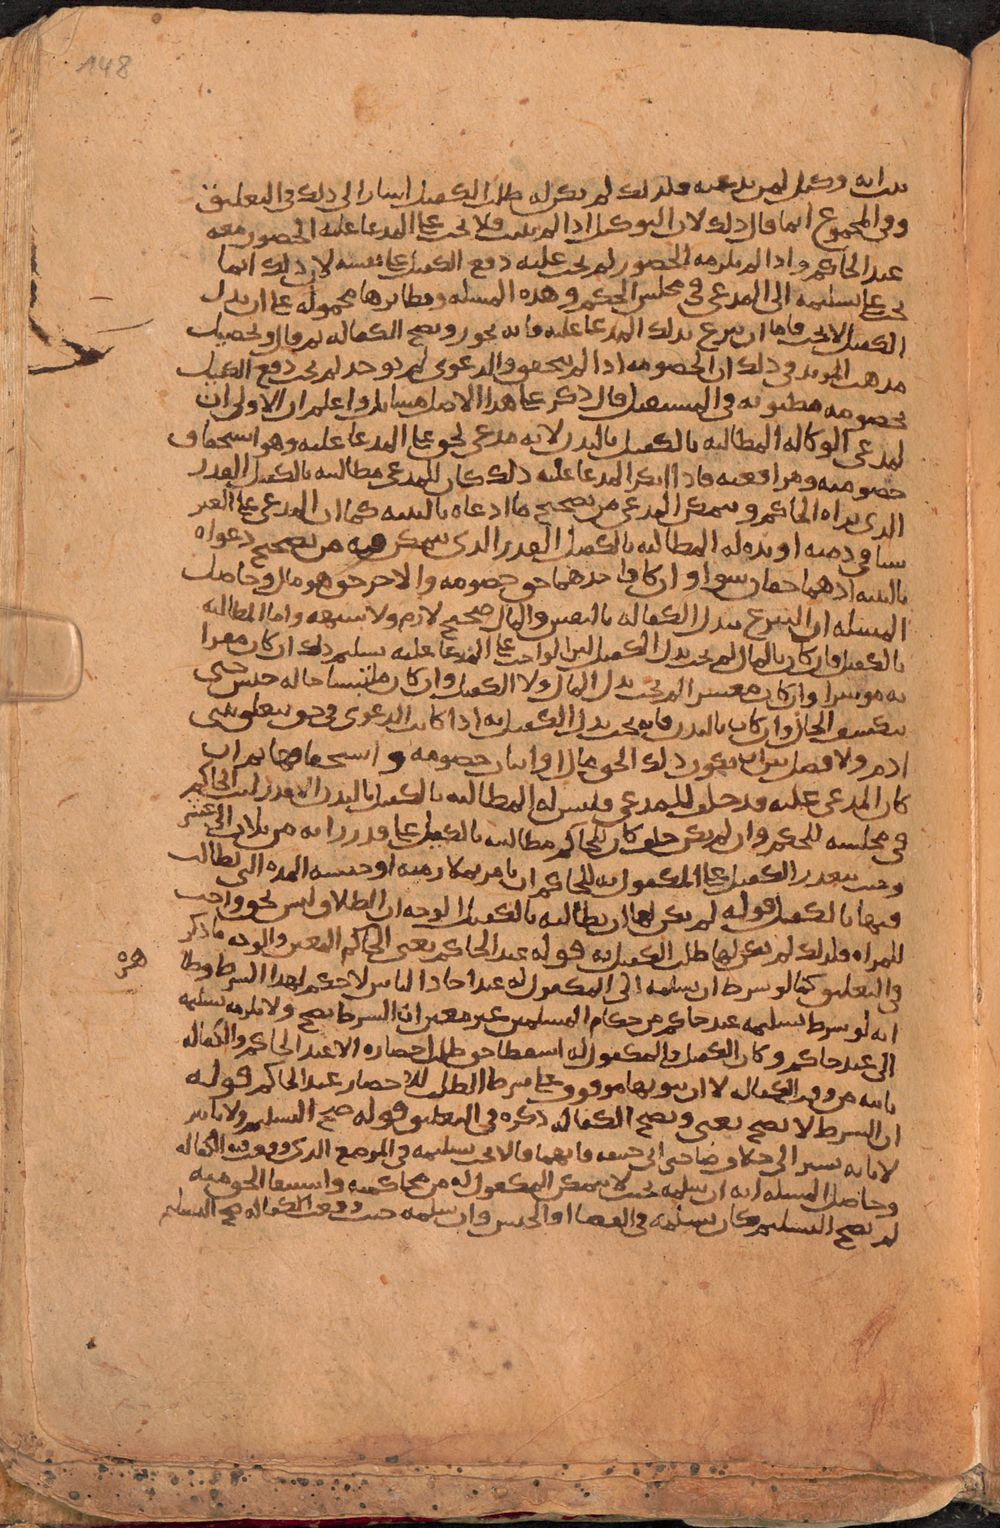 148
انه وكيل لمن يدعيه فلذلك لم يكن له طلب الكفيل اشار الى ذلك في التعليق
وفي المجموع انما قال ذلك لان التوكيل اذا لم يثبت فلا يجب على المدعا عليه الحضور معه
عند الحاكم واذا لم يلزمه الحضور لم يجب عليه دفع الكفيل على نفسه لان ذلك انما
يجب على تسليمه الى المدعي في مجلس الحكم وهذه المسله ونظايرها محموله على ان بذل
الكفيل لا يجب فاما ان تبرع بذلك المدعا عليه فانه يجوز وتصح الكفاله ثم قال وتحصيل
مذهب المويد في ذلك ان الخصومه اذا لم تتحقق والدعوى لم توجد لم يجب دفع الكفيل
بخصومه مظنونه في المستقبل قال ذكر على هذا الاصل مسايل واعلم ان الاولى ان
لمدعي الوكاله المطالبه بالكفيل بالبدن لانه مدعي لحق على المدعا عليه وهو استحقاق
خصومته ومرافعته فاذا انكر المدعا عليه ذلك كان للمدعي مطالبته بالكفيل القدر
الذي يراه الحاكم ويتمكن المدعي من تصحيح ما ادعاه بالبينه كما ان المدعي على الغير
شيا في ذمته او يده له المطالبه بالكفيل القدر الذي يتمكن فيه من تصحيح دعواه
بالبينه اذ هما حقان سوا وان كان احدهما حق خصومه والاخر حق هو مال وحاصل
المسله ان التبرع ببذل الكفاله بالنفس والمال صحيح لازم ولا شبهه واما المطالبه
بالكفيل فان كان بالمال لم يجب بذل الكفيل اذ الواجب على المدعا عليه تسليم ذلك ان كان مقرا
به موسرا وان كان معسرا لم يجب بذل المال ولا الكفيل وان كان ملتبسا حاله حبس حتى
ينكشف الحال وان كان بالبدن فانه يجب بذل الكفيل به اذا كانت الدعوى في حق يتعلق بحق
ادم ولا فصل بين ان يكون ذلك الحق مالا او اثبات خصومه واستحقاقها ثم ان
كان المدعى عليه قد حلف للمدعي فليس له المطالبه بالكفيل بالبدن الا قدر لبث الحاكم
في مجلسه للحكم وان لم يكن حلف كان للحاكم مطالبته بالكفيل على قدر رايه من ثلاث الى عشر
وحيث يتعذر الكفيل على المكفول به للحاكم ان يامر بملازمته او حبسه المده التي يطالب
فيها بالكفيل قوله لم يكن لها ان تطالبه بالكفيل الوجه ان الطلاق ليس بحق واجب
للمراه فلذلك لم يكن لها طلب الكفيل به قوله عند الحاكم يعني الحاكم المعين والوجه ما ذكر
في التعليق كما لو شرط ان يسلمه الى المكفول له عند احاد الناس لا حكم لهذا الشرط وظا
هره
انه لو شرط تسليمه عند حاكم من حكام المسلمين غير معين ان الشرط يصح ولا يلزمه تسليمه
الى عند حاكم وكان الكفيل والمكفول له اسقطا حق طلب احضاره الا عند الحاكم والكفاله
ثابته من وقت الكفاله لا ان ثبوتها موقوف على شرط الطلب للاحضار عند الحاكم قوله
ان الشرط لا يصح يعني وتصح الكفاله ذكره في التعليق قوله صح التسليم ولا تاثير
لاباته يشير الى خلاف صاحبي ابي حنيفه فانهما قالا يجب تسليمه في الموضع الذي وقعت فيه الكفاله
وحاصل المسله انه ان سلمه بحيث لا يتمكن المكفول له من محاكمته واستيفا الحق منه
لم يصح التسليم كان يسلمه في الفضا او الحبس وان سلمه حيث وقعت الكفاله صح التسليم